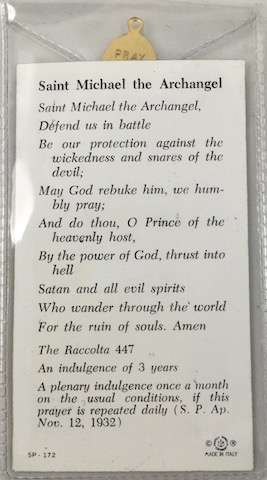 PRAY
Saint Michael the Archangel
Saint Michael the Archangel,
Defend us in battle
Be our protection against the
wickedness and snares of the
devil;
May God rebuke him, we hum-
bly pray;
And do thou, O Prince of the
heavenly host,
By the power of God, thrust into
hell
Satan and all evil spirits
Who wander through the world
For the ruin of souls. Amen
The Raccolta 447
An indulgence of 3 years
A plenary indulgence once a month
on the usual conditions, if this
this prayer is repeated daily (S. P. Ap.
Nov. 12, 1932)
SP - 172
© ®
MADE IN ITALY